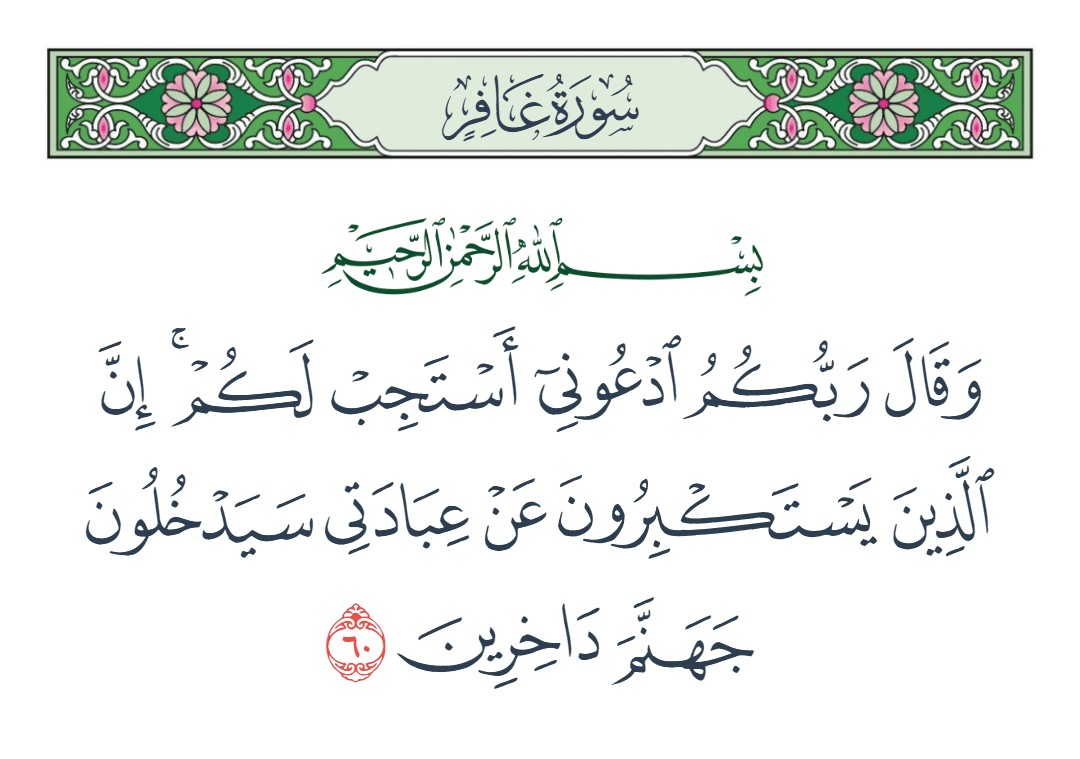 سُورَةُ غَافِرٍ
بِسْمِ ٱللَّهِ ٱلرَّحْمَٰنِ ٱلرَّحِيمِ
وَقَالَ رَبُّكُمُ ٱدْعُونِىٓ أَسْتَجِبْ لَكُمْ ۚ إِنَّ
ٱلَّذِينَ يَسْتَكْبِرُونَ عَنْ عِبَادَتِى سَيَدْخُلُونَ
جَهَنَّمَ دَاخِرِينَ ٦٠